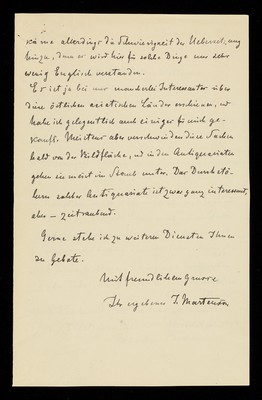 käme allerdings die Schwierigkeit der Uebersetzung
hinzu, denn es wird hier für solche Dinge nur sehr
wenig Englisch verstanden.
Es ist ja bei mir mancherlei Interessantes über
diese östlichen asiatischen Länder erschienen, und
habe ich gelegentlich auch einiges für mich ge-
kauft. Meistens aber verschwinden diese Sachen
bald von der Bildfläche, und in den Antiquariaten
gehen sie meist im Staub unter. Das Durchstö-
bern solcher Antiquariate ist zwar ganz interessant,
aber — zeitraubend.
Gerne stehe ich zu weiteren Diensten Ihnen
zu Gebote.
Mit freundlichem Grusse
Ihr ergebener T. Martenson